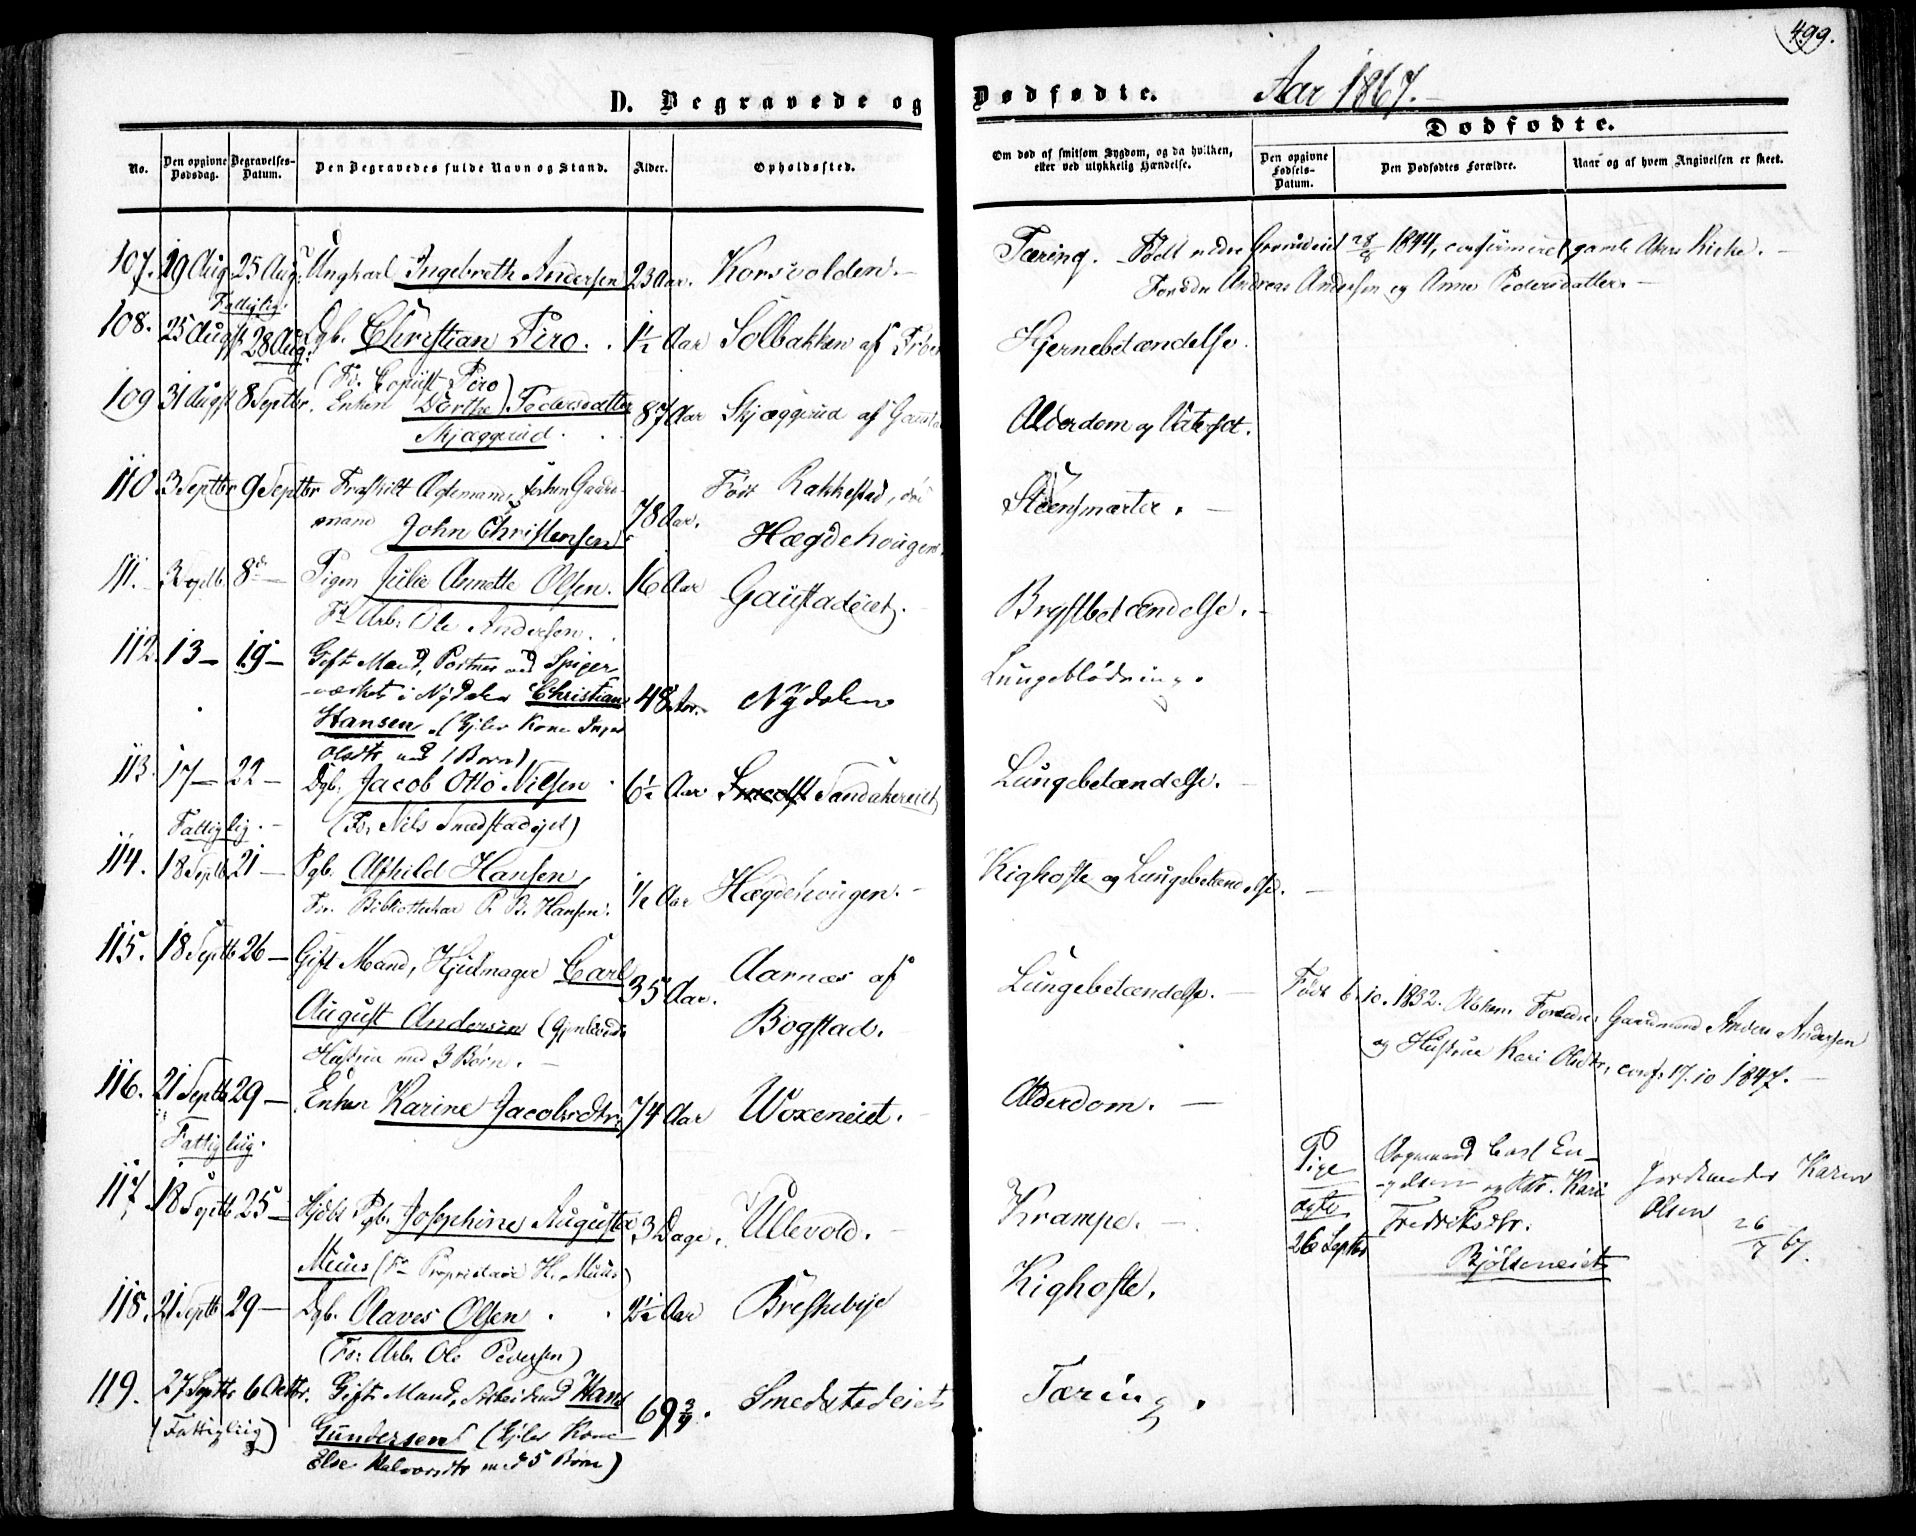 499.
D. Begravede og Dødfødte. Aar 1867.
Dødfødte.
No.
Den opgivne Dødsdag.
Begravelses-Datum.
Den Begravedes fulde Navn og Stand.
Alder.
Opholdssted.
Om død af smitsom Sygdom, og da hvilken, eller ved ulykkelig Hændelse.
Den opgivne Fødsels-Datum.
Den Dødfødtes Forældre.
Naar og af hvem Angivelsen er skeet.
107. 19 Aug 25 Aug. Ungkarl Ingebreth Andersen 23 Aar. Korsvolden. Tæring. Født nedre Grændseid 28/8 1844, confirmeret gamle Akers Kirke.
Forældre Andreas Andersen og Anne Pedersdatter.
Fattiglig.
108. 25 Augst 28 Aug. Dgb. Christian Piro. 1½ Aar Solbakken af Frøen Hjernebetændelse.
(Fr. Copiist Piro)
109 31 Augst 8 Septbr. Enken Dorthe Pedersdatter 87 Aar Skjæggerud af Gausta Alderdom og Vatersot.
Skjæggerud.
110. 3 Septbr 9 Septbr Fraskilt Ægtemand, forhen Gaard-
mand John Christensen 78 Aar. Født Rakkestad, død Hægdehougen. Steensmerter.
111. 3 Septb 8de Pigen Julie Annette Olsen. 16 Aar Gaustadeiet. Brystbetændelse.
Fr Arb. Ole Andersen.
112. 13 - 19 - Gift Mand, Portner ved Spiger-
værket i Nydalen Christian 48 Aar. Nydalen Lungeblødning.
Hansen. (Efter Kone Inger
Olsdtr med 1 Barn)
113. 17 - 22 - Dgb. Jacob Otto Nilsen 6½ Aar Smedst Sandakereiet Lungebetændelse.
Fattiglig. (Fr. Nils Smedstadejet)
114. 18 Septb 21 - Pgb. Alfhild Hansen, ½ Aar Hægdehougen. Kighoste og Lungebetændelse.
For. Bibliothekar P. B. Hansen.
115. 18 Septb 26 - Gift Mand, Hjulmager Carl 35 Aar. Aarnæs af Lungebetændelse. Født 6. 10. 1832. Forældre Gaardmand Anders Andersen
August Andersen (Gjenlevende Bogstad. og Hustrue Kari Olsdtr, conf. 17. 10 1847.
Hustrue med 3 Børn.
116. 21 Septb 29 - Enken Karine Jacobsdtr. 74 Aar Woxeneiet. Alderdom.
Fattiglig.
117. 18 Septb 25 - Hjdbt Pgb. Josephine Augusta 3 Dage. Ullevold. Krampe.
Muus (Fr Proprietær H. Muus)
Pige
26 Septbr
Vognmand Carl En-
gelsen og Hstr. Kari
Fredriksdtr.
Bjølseneiet
Jordmoder Karen
Olsen 26/7 67.
118. 21 Septb 29 - Dgb. Olaves Olsen 2½ Aar Breskebye Kighoste.
(Fr. Arb. Ole Pedersen)
119. 27 Septbr 6 Octbr. Gift Mand, Arbeidsmd Hans 69 3/4. Smedstedeiet Tæring.
(Fattiglig) Gundersen (Efter Kone
Else Halvorsdtr med 5 Børn)